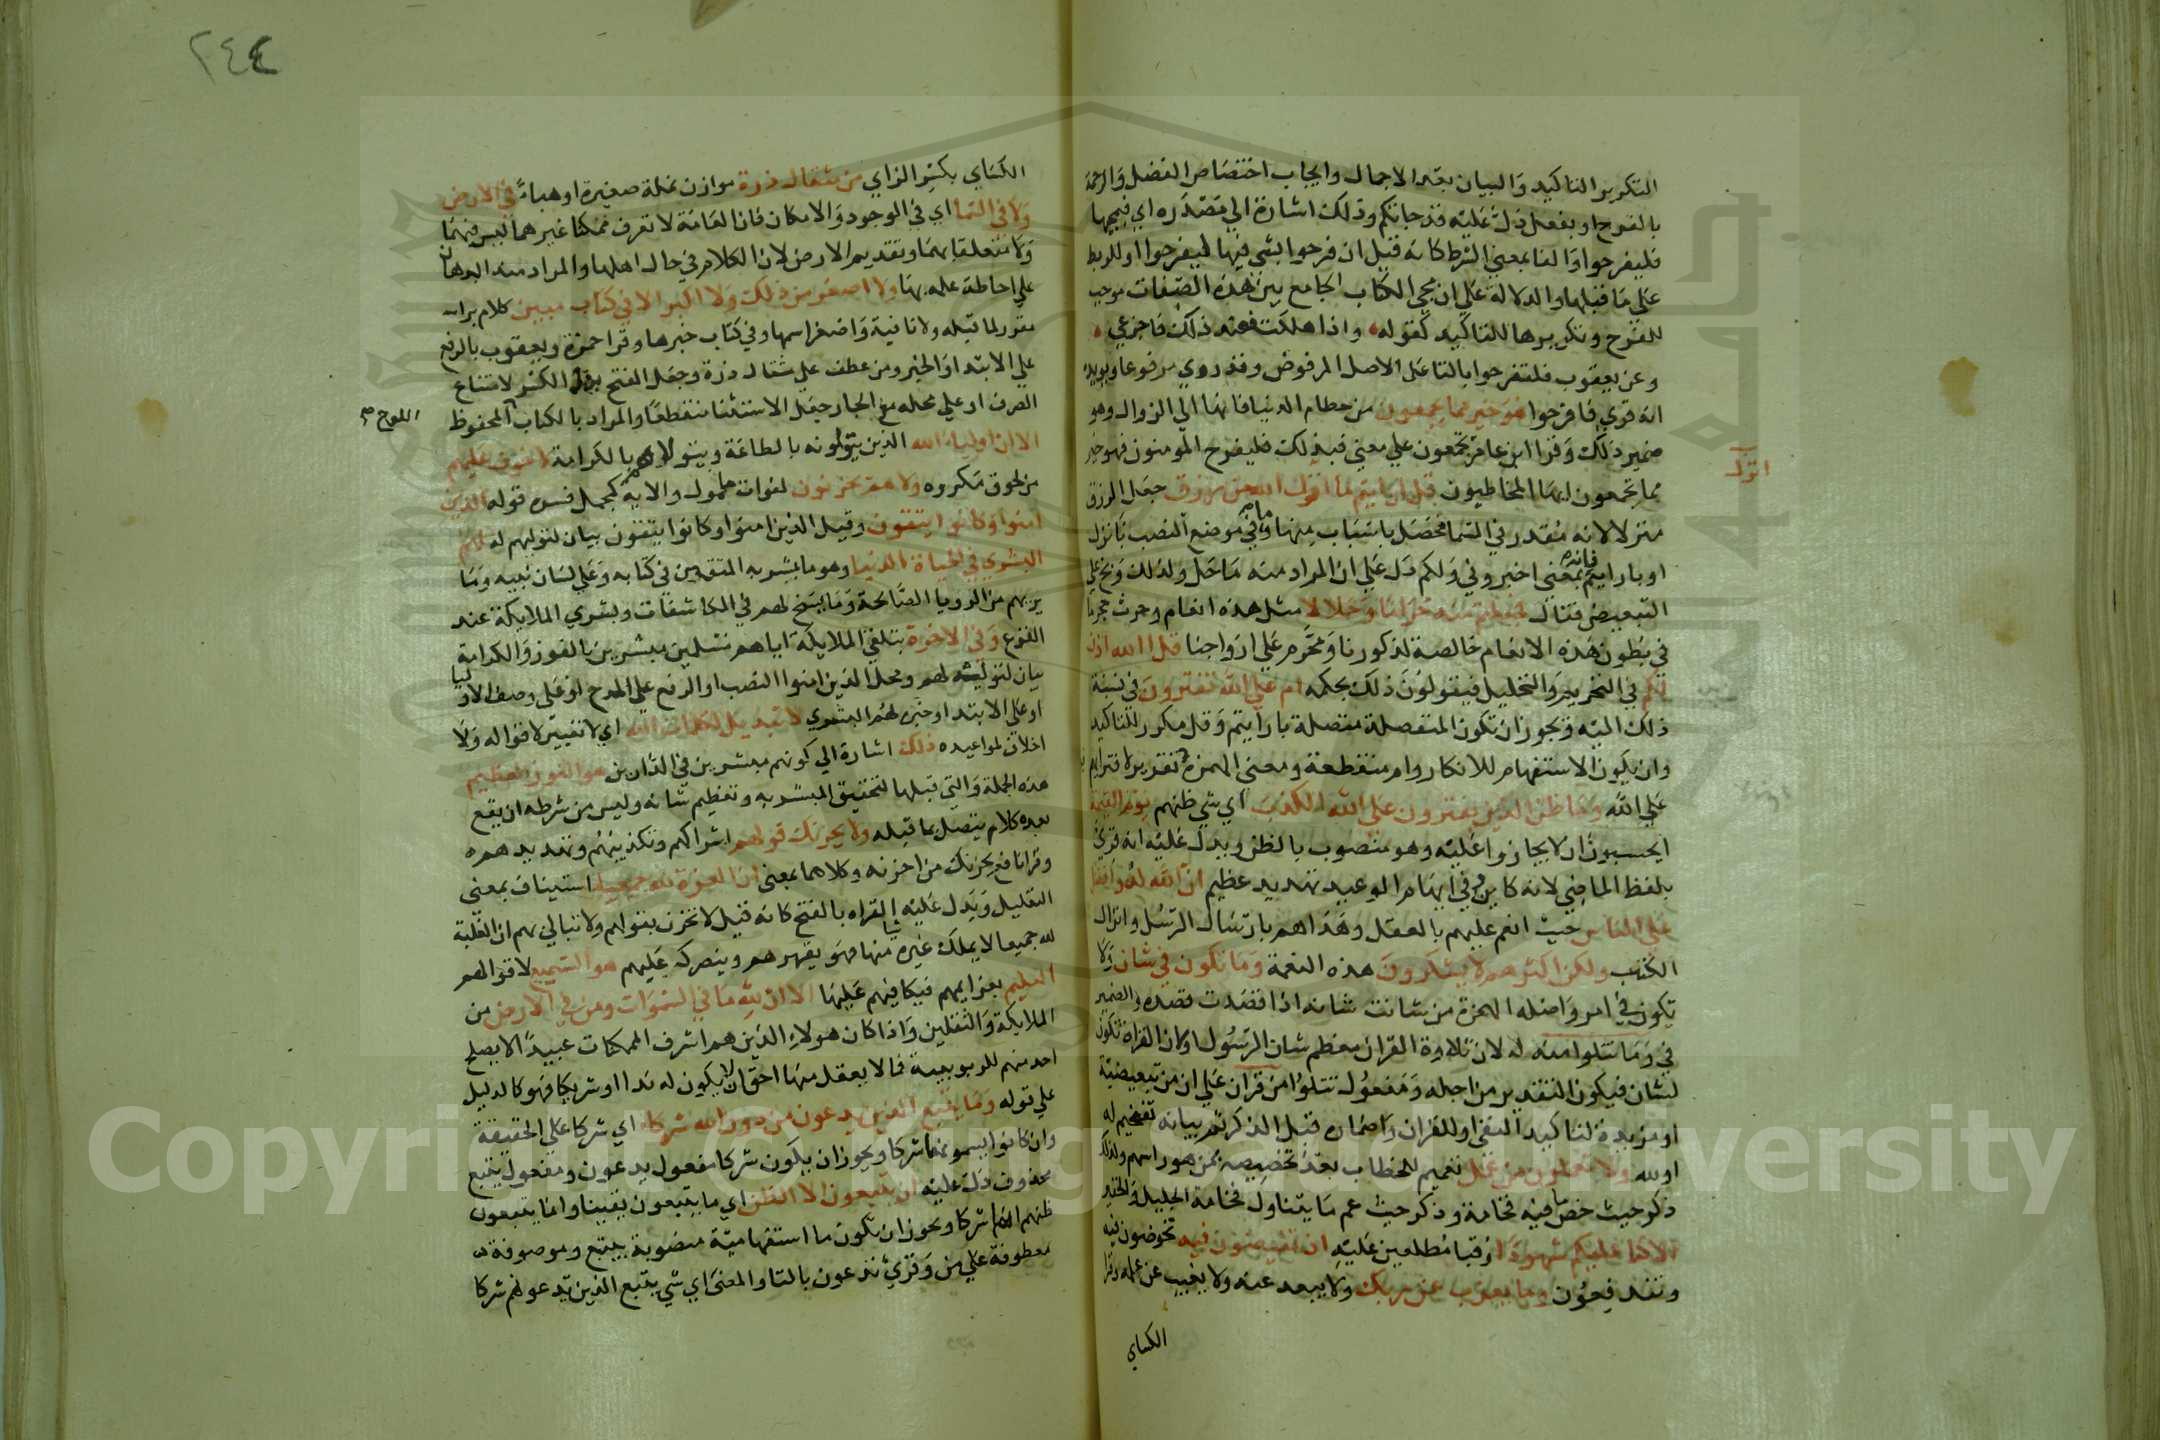 التكرير التاكيد والبيان بعد الاجمال وايجاب اختصاص الفضل والرحمة
بالفرح او بفعل دل عليه قد جاتكم وذلك اشارة الي مصدره اي فبمجيها
فليفرحوا والفا بمعني الشرط كانه قيل ان فرحوا بشي فبهما ليفرحوا او للربط
علي ما قبلها والدلالة علي ان مجي الكتاب الجامع بين هذه الصفات موجب
للفرح وتكريرها للتاكيد كقوله واذا هلكت فعند ذلك فاجزعي
وعن يعقوب فلتفرحوا بالتا علي الاصل المرفوض وقد روي مرفوعا ويويده
انه قري فافرحوا هو خير مما يجمعون من حطام الدنيا فانها الي الزوال وهو
ضمير ذلك وقرا ابن عامر تجمعون علي معني فبذلك فليفرح المومنون فهو خير
مما تجمعون ايها المخاطبون قل ارايتم ما انزل الله من رزق جعل الرزق
انزل
منزلا لانه مقدر في السما محصل باسباب منها وما في موضع النصب بانزل
او بارايتم فانه بمعني اخبروني ولكم دل علي ان المراد منه ما حل ولذلك وبخ علي
التبعيض فقال فجعلتم منه حراما وحلالا مثل هذه انعام وحرث حجر ما
في بطون هذه الانعام خالصة لذكورنا ومحرم علي ازواجنا قل الله اذن
لكم في التحريم والتحليل فيقولون ذلك بحكمه ام علي الله تفترون في نسبة
ذلك اليه ويجوز ان تكون المنفصلة متصلة بارايتم وقل مكرر للتاكيد
وان يكون الاستفهام للانكار وام منقطعة ومعني الهمزة تقرير لافترايهم
علي الله وما ظن الذين يفترون علي الله الكذب اي شي ظنهم يوم القيمة
ايحسبون ان لا يجازوا عليه وهو منصوب بالظن ويدل عليه انه قري
بلفظ الماضي لانه كاين وفي ابهام الوعيد تهديد عظيم ان الله لذو فضل
علي الناس حيث انعم عليهم بالعقل وهداهم بارسال الرسل وانزال
الكتب ولكن اكثرهم لا يشكرون هذه النعمة وما تكون في شان ولا
تكون في امر واصله الهمزة من شانت شانه اذا قصدت قصده والضمير
في وما تتلوا منه له لان تلاوة القران معظم شان الرسول او لان القراة تكون
لشان فيكون التقدير من اجله ومفعول تتلوا من قران علي ان من تبعيضية
او مزيدة لتاكيد النفي او للقران واضماره قبل الذكر ثم بيانه تفخيم له
او لله ولا تعملون من عمل تعميم للخطاب بعد تخصيصه بمن هو راسهم ولذلك
ذكر حيث خص ما فيه فخامة وذكر حيث عم ما يتناول فخامة الجليل والحقير
الا كنا عليكم شهودا رقبا مطلعين عليه اذ تفيضون فيه تخوضون فيه
وتندفعون وما يعزب عن ربك ولا يبعد عنه ولا يغيب عن علمه وقرا
الكساي
٢٤٤
الكساي بكسر الزاي من مثقال ذرة موازن نملة صغيرة او هباء في الارض
ولا في السما اي في الوجود والامكان فان العامة لا تعرف ممكنا غيرهما ليس فيهما
ولا متعلقا بهما وتقديم الارض لان الكلام في حال اهلها والمراد منه البرهان
علي احاطة علمه بها ولا اصغر من ذلك ولا اكبر الا في كتاب مبين كلام براسه
مقرر لما قبله ولا نافية واصغر اسمها وفي كتاب خبرها وقرا حمزة ويعقوب بالرفع
علي الابتدا والخبر ومن عطف علي مثقال ذرة وجعل الفتح بدل الكسر لامتناع
الصرف او علي محله مع الجار جعل الاستثنا منقطعا والمراد بالكتاب المحفوظ
اللوح صح
الا ان اوليا الله الذين يتولونه بالطاعة ويتولاهم بالكرامة لا خوف عليهم
من لحوق مكروه ولا هم يحزنون لفوات مامول والاية كمجمل فسره قوله الذين
امنوا وكانوا يتقون وقيل الذين امنوا وكانوا يتقون بيان لتوليهم له لهم
البشري في الحياة الدنيا وهو ما بشر به المتقين في كتابه وعلي لسان نبيه وما
يريهم من الرويا الصالحة وما يسنح لهم في المكاشفات وبشري الملايكة عند
النزع وفي الاخرة بتلقي الملايكة اياهم مسلمين مبشرين بالفوز والكرامة
بيان لتوليته لهم ومحل الذين امنوا النصب او الرفع علي المدح او علي وصف الاوليا
او علي الابتدا وخبره لهم البشري لا تبديل لكلمات الله اي لا تغيير لاقواله ولا
اخلاف لمواعيده ذلك اشارة الي كونهم مبشرين في الدارين هو الفوز العظيم
هذه الجملة والتي قبلها لتحقيق المبشر به وتعظيم شانه وليس من شرطه ان يقع
بعده كلام يتصل بما قبله ولا يحزنك قولهم اشراكهم وتكذيبهم وتهديدهم
وقرا نافع يحزنك من احزنه وكلاهما بمعني ان العزة لله جميعا استيناف بمعني
التعليل ويدل عليه القراه بالفتح كانه قيل لا تحزن بقولهم ولا تبالي بهم ان الغلبة
لله جميعا لا يملك غيره شيا منها فهو يقهرهم وينصرك عليهم هو السميع لاقوالهم
العليم بعزايمهم فيكافيهم عليها الا ان لله ما في السموات ومن في الارض من
الملايكة والثقلين واذا كان هولاء الذين هم اشرف الممكنات عبيدا لا يصلح
احد منهم للربوبية فما لا يعقل منها احق ان لا يكون له ندا او شريكا فهو كالدليل
علي قوله وما يتبع الذين يدعون من دون الله شركا اي شركا علي الحقيقة
وان كانوا يسمونها شركا ويجوز ان يكون شركا مفعول يدعون ومفعول يتبع
محذوف دل عليه ان يتبعون الا الظن اي ما يتبعون يقينا وانما يتبعون
ظنهم انها شركا ويجوز ان تكون ما استفهامية منصوبة بيتبع وموصوفة
معطوفة علي من وقري تدعون بالتا والمعني اي شي يتبع الذين تدعونهم شركا